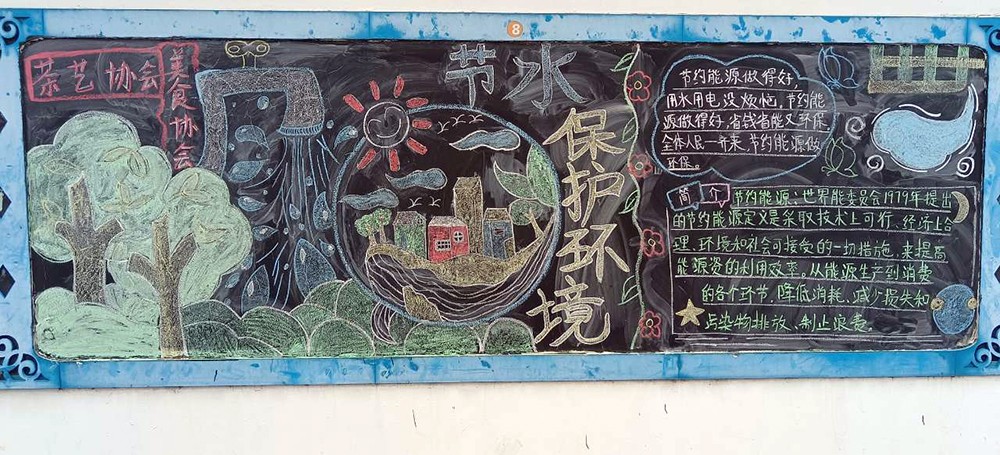 8
茶艺协会
美食协会
节水
保护环境
节约能源做得好,
用水用电没烦恼,节约能
源做得好,省钱省能又环保
全体人民一齐来,节约能源做
环保。
简介
节约能源:世界能委员会1979年提出
的节约能源定义是采取技术上可行、经济上合
理、环境和社会可接受的一切措施,来提高
能源资的利用效率。从能源生产到消费
的各个环节,降低消耗、减少损失和
污染物排放、制止浪费。